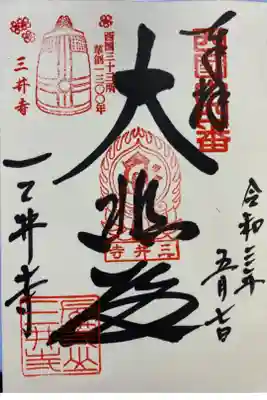 奉拝
令和三年
五月七日
大悲殿
三井寺
西国三十三所
草創一三〇〇年
三井寺
三井寺